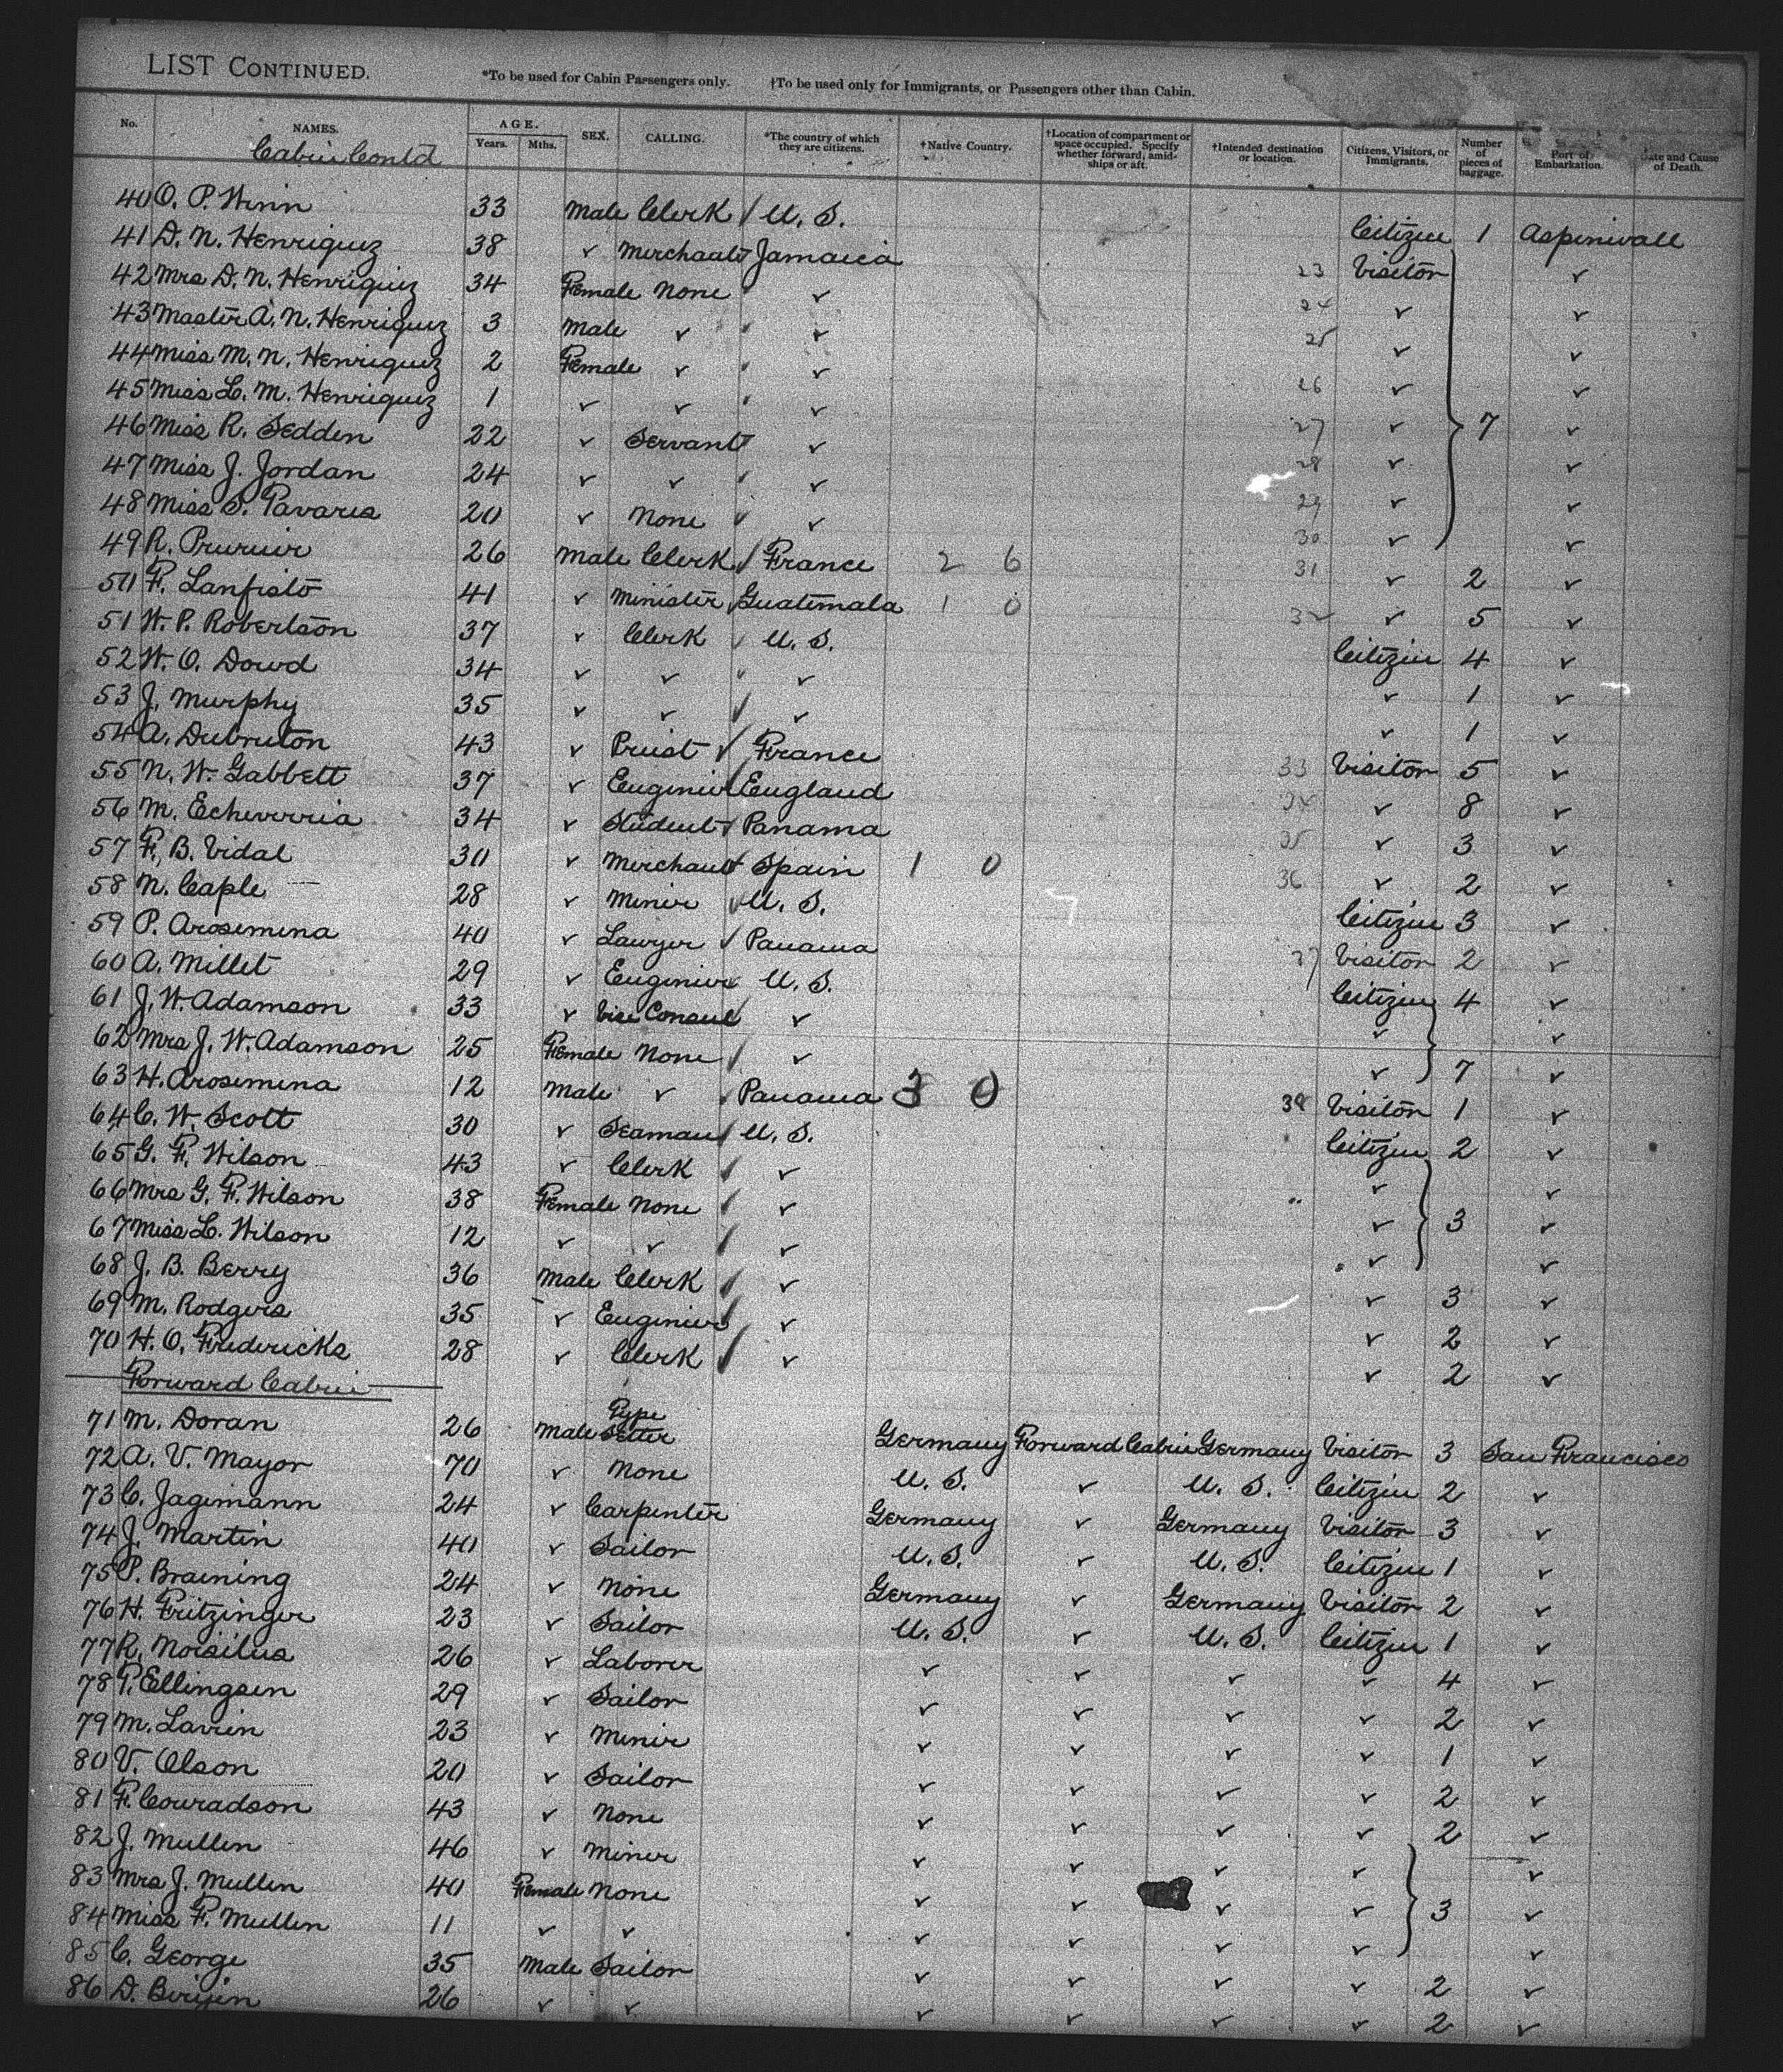 LIST CONTINUED. *To be used for Cabin Passengers only. †To be used only for Immigrants, or Passengers other than Cabin.
No. NAMES. AGE. Years. Mths. SEX. CALLING. *The country of which they are citizens. †Native Country. †Location of compartment or space occupied. Specify whether forward, amidships or aft. †Intended destination or location. Citizens, Visitors, or Immigrants. Number of pieces of baggage. Port of Embarkation. Date and Cause of Death.
Cabin Contd
40 O. P. Winn 33 Male Clerk / U. S. Citizen 1 Aspinwall
41 D. N. Henriquez 38 ✓ Merchant Jamaica 23 Visitor ✓
42 Mrs D. N. Henriquez 34 Female None ✓ 24 ✓ ✓
43 Master A. N. Henriquez 3 Male ✓ ✓ 25 ✓ ✓
44 Miss M. N. Henriquez 2 Female ✓ ✓ 26 ✓ ✓
45 Miss L. M. Henriquez 1 ✓ ✓ ✓ 27 ✓ 7 ✓
46 Miss R. Sedden 22 ✓ Servant ✓ 28 ✓ ✓
47 Miss J. Jordan 24 ✓ ✓ ✓ 29 ✓ ✓
48 Miss S. Tavares 20 ✓ None ✓ 30 ✓ ✓
49 R. 26 Male Clerk / France 2 6 31 ✓ 2 ✓
50 F. Lanfisto 41 ✓ Minister Guatemala 1 0 32 ✓ 5 ✓
51 W. P. Robertson 37 ✓ Clerk / U. S. Citizen 4 ✓
52 W. O. Dowd 34 ✓ ✓ ✓ ✓ 1 ✓
53 J. Murphy 35 ✓ ✓ / ✓ ✓ 1 ✓
54 A. Dubruton 43 ✓ Priest ✓ France 33 Visitor 5 ✓
55 N. W. Gabbett 37 ✓ Engineer England 34 ✓ 8 ✓
56 M. Echeverria 34 ✓ Student ✓ Panama 35 ✓ 3 ✓
57 F. B. Vidal 30 ✓ Merchant Spain 1 0 36 ✓ 2 ✓
58 N. Caple 28 ✓ Miner ✓ U. S. Citizen 3 ✓
59 P. Arosemena 40 ✓ Lawyer ✓ Panama 37 Visitor 2 ✓
60 A. Millet 29 ✓ Engineer U. S. Citizen 4 ✓
61 J. W. Adamson 33 ✓ Vice Consul ✓ ✓ ✓
62 Mrs J. W. Adamson 25 Female None / ✓ ✓ 7 ✓
63 H. Arosemena 12 Male ✓ Panama 3 0 38 Visitor 1 ✓
64 C. W. Scott 30 ✓ Seaman / U. S. Citizen 2 ✓
65 G. F. Wilson 43 ✓ Clerk / ✓ ✓ ✓
66 Mrs G. F. Wilson 38 Female None / ✓ ✓ 3 ✓
67 Miss L. Wilson 12 ✓ ✓ / ✓ ✓ ✓
68 J. B. Berry 36 Male Clerk / ✓ ✓ 3 ✓
69 M. Rodgers 35 ✓ Engineer ✓ ✓ 2 ✓
70 H. O. Fredericks 28 ✓ Clerk / ✓ ✓ 2 ✓
Forward Cabin
71 M. Doran 26 Male Type Setter Germany Forward Cabin Germany Visitor 3 San Francisco
72 A. V. Mayor 70 ✓ None U. S. ✓ U. S. Citizen 2 ✓
73 C. Jagemann 24 ✓ Carpenter Germany ✓ Germany Visitor 3 ✓
74 J. Martin 40 ✓ Sailor U. S. ✓ U. S. Citizen 1 ✓
75 P. Braening 24 ✓ None Germany ✓ Germany Visitor 2 ✓
76 H. Fritzinger 23 ✓ Sailor U. S. ✓ U. S. Citizen 1 ✓
77 R. 26 ✓ Laborer ✓ ✓ ✓ ✓ 4 ✓
78 P. Ellingsen 29 ✓ Sailor ✓ ✓ ✓ ✓ 2 ✓
79 M. Lavin 23 ✓ Miner ✓ ✓ ✓ ✓ 1 ✓
80 V. Olson 20 ✓ Sailor ✓ ✓ ✓ ✓ 2 ✓
81 F. Conradson 43 ✓ None ✓ ✓ ✓ ✓ 2 ✓
82 J. Mullen 46 ✓ Miner ✓ ✓ ✓ ✓ ✓
83 Mrs J. Mullen 40 Female None ✓ ✓ ✓ ✓ 3 ✓
84 Miss F. Mullen 11 ✓ ✓ ✓ ✓ ✓ ✓ ✓
85 C. George 35 Male Sailor ✓ ✓ ✓ ✓ 2 ✓
86 D. 26 ✓ ✓ ✓ ✓ ✓ ✓ 2 ✓